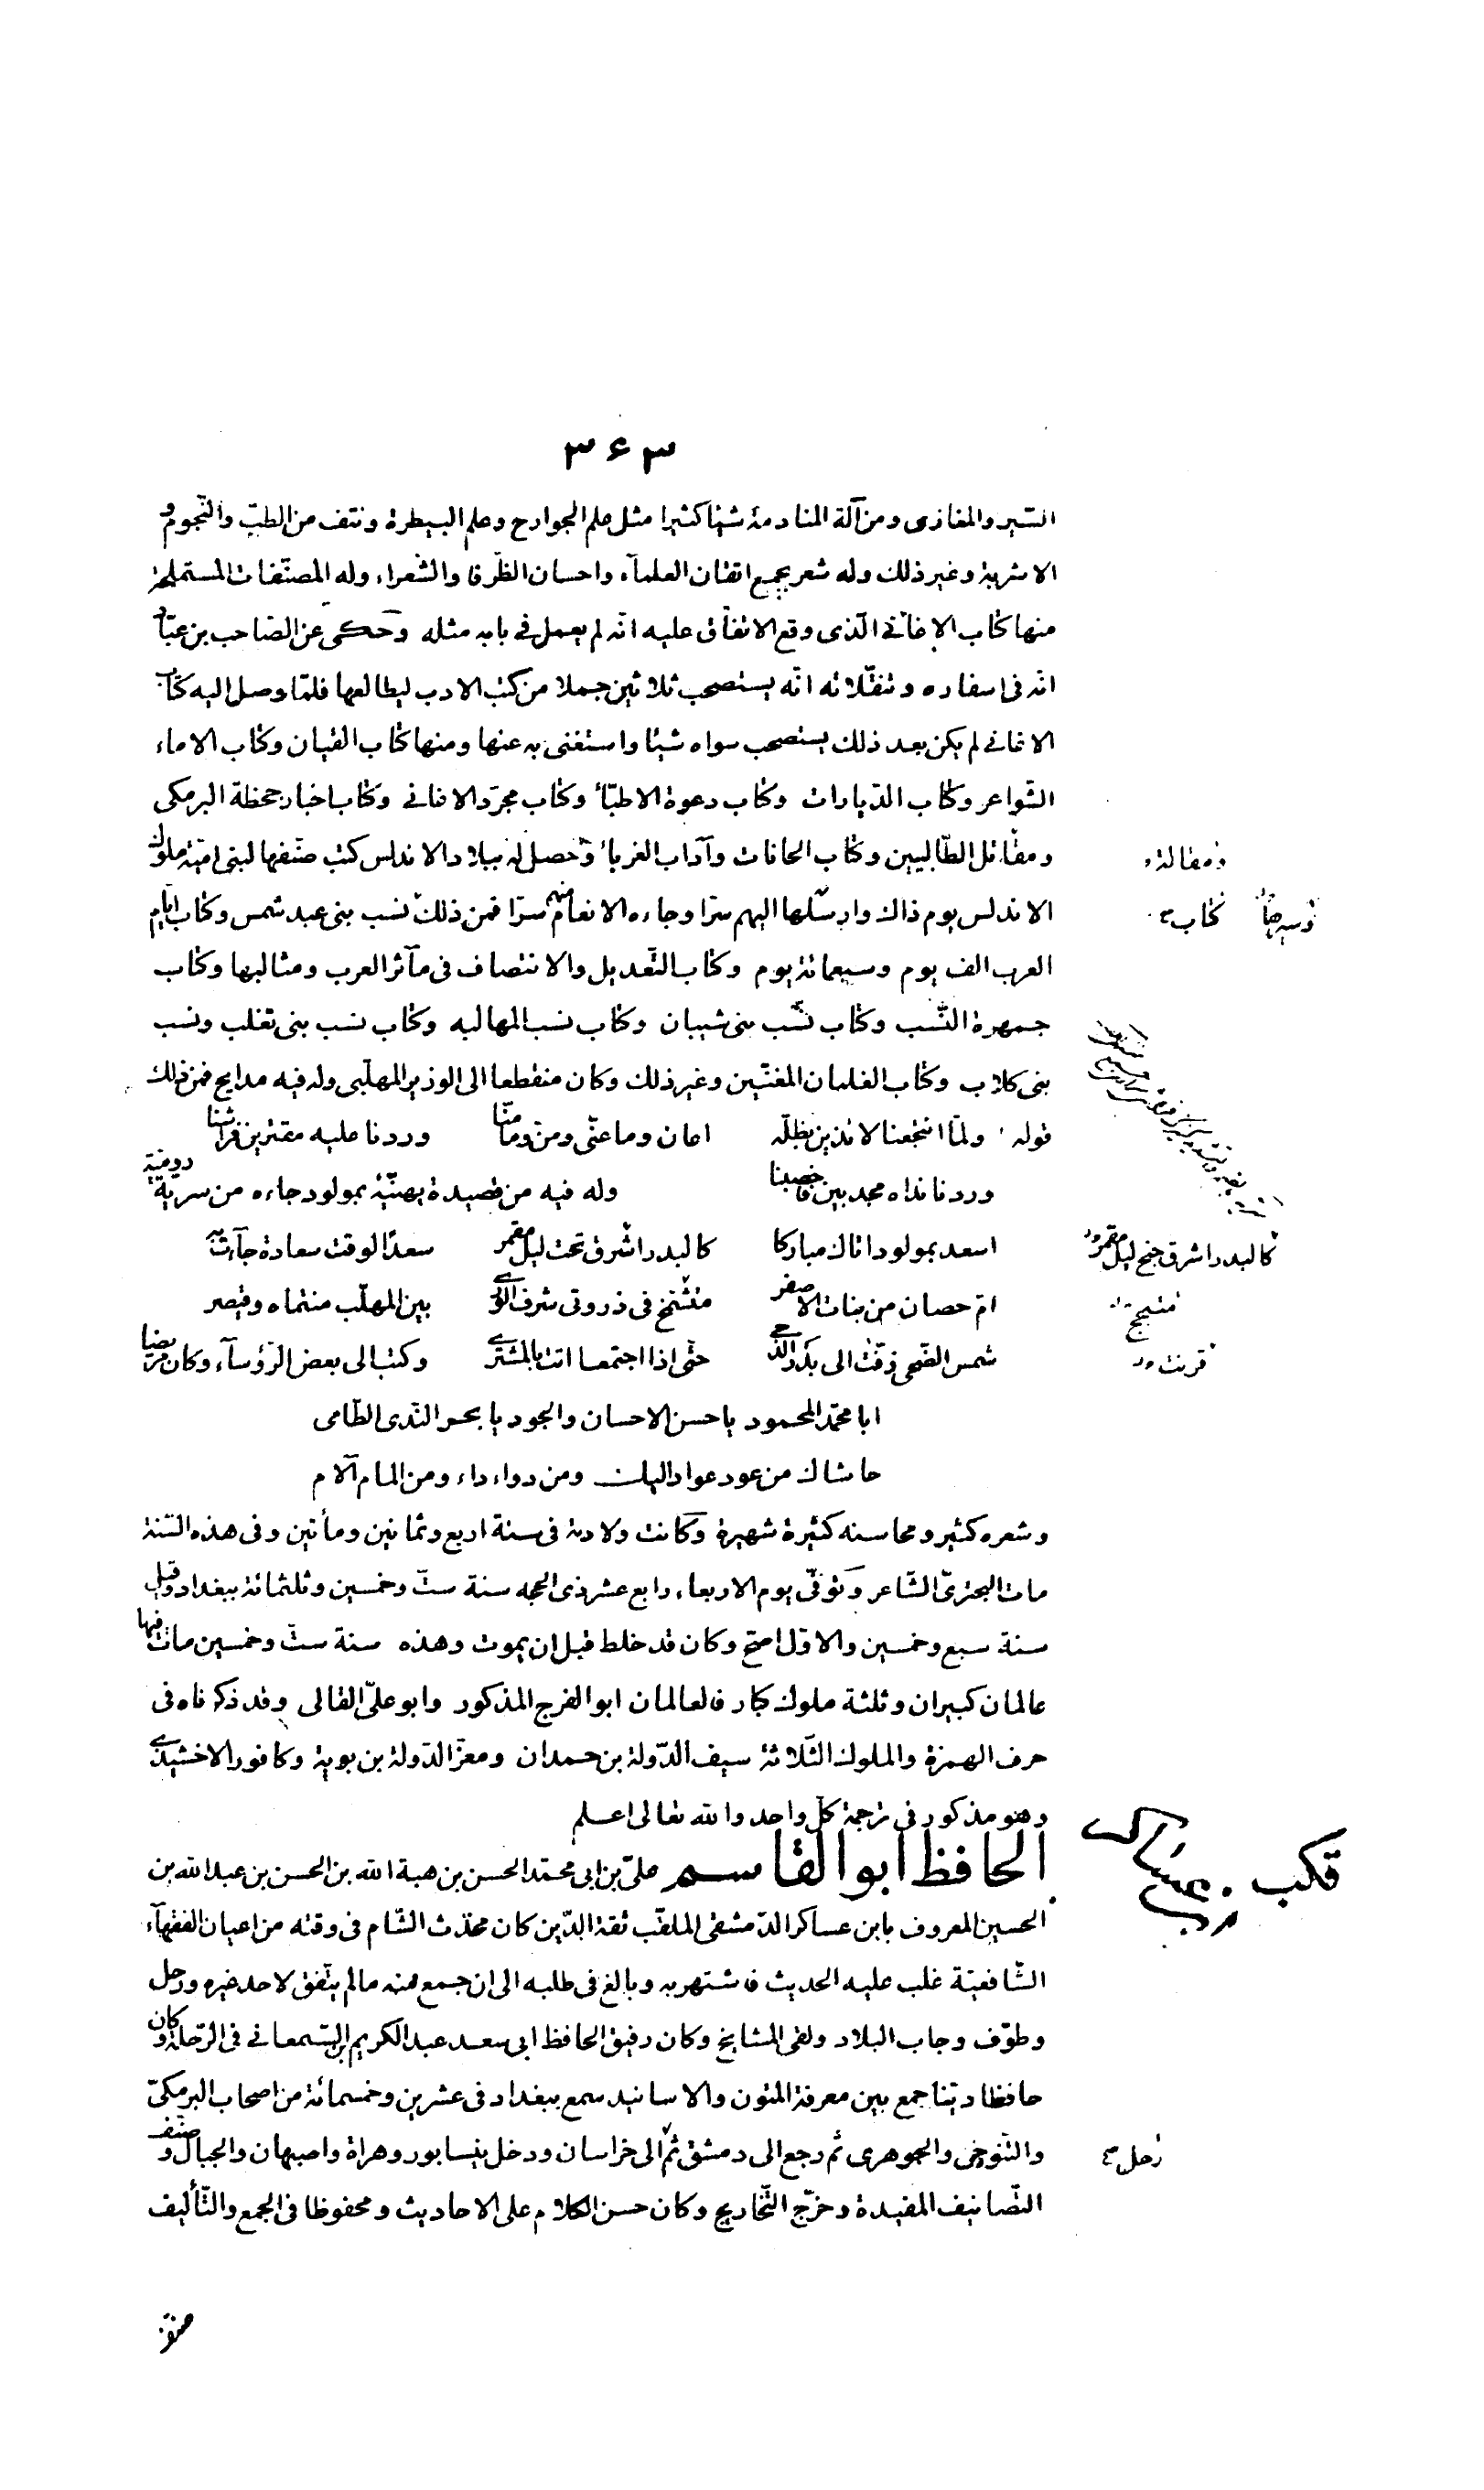 ۳۶۳
السّير والمغازى ومن آلة المنادمة شيئا كثيرا مثل علم الجوارح وعلم البيطرة ونتف من الطبّ والنّجوم و
الاشربة وغير ذلك وله شعر يجمع اتقان العلمآء واحسان الظّرفا والشّعراء وله المصنّفات المستملحة
منها كتاب الاغانى الّذى وقع الاتفاق عليه انّه لم يعمل فى بابه مثله وحكى عن الصّاحب بن عبّاد
انّه فى اسفاره وتنقّلاته انّه يستصحب ثلاثين جملا من كتب الادب ليطالعها فلمّا وصل اليه كتاب
الاغانى لم يكن بعد ذلك يستصحب سواه شيئا واستغنى به عنها ومنها كتاب القيان وكتاب الاماء
الشّواعر وكتاب الدّيارات وكتاب دعوة الاطبّآء وكتاب مجرّد الاغانى وكتاب اخبار جحظة البرمكى
ومقاتل الطّالبيين وكتاب الحانات وآداب الغرباء وحصل له ببلاد الاندلس كتب صنّفها لبنى اميّة ملوك
الاندلس يوم ذاك وارسلها اليهم سرّا وجاءه الانعام منهم سرّا فمن ذلك نسب بنى عبد شمس وكتاب ايّام
العرب الف يوم وسبعمائة يوم وكتاب التّعديل والانتصاف فى مآثر العرب ومثالبها وكتاب
جمهرة النّسب وكتاب نسب بنى شيبان وكتاب نسب المهالبه وكتاب نسب بنى تغلب ونسب
بنى كلاب وكتاب الغلمان المغنّين وغير ذلك وكان منقطعا الى الوزير المهلّبى وله فيه مدايح فمن ذلك
قوله ولمّا انتجعنا لائذين بظلّه اعان وما عنّى ومنّ وما منّا وردنا عليه مقترين فراشنا
وردنا نداه مجدبين فاخصبنا وله فيه من قصيدة يهنّئه بمولود جاءه من سريّة روميّة
اسعد بمولود اتاك مباركا كالبدر اشرق تحت ليل مقمر سعد لوقت سعادة جآءت به
امّ حصان من بنات الاصفر متشمّخ فى ذروتى شرف الورى بين المهلّب منتماه وقيصر
شمس الضّحى زفّت الى بدر الدّجى حتّى اذا اجتمعا اتت بالمشترى وكتب الى بعض الرّؤسآء وكان مريضا
ابا محمّد المحمود يا حسن الاحسان والجود يا بحر النّدى الطّامى
حاشاك من عود عوّاد اليك ومن دواء داء ومن المام آلام
وشعره كثير ومحاسنه كثيرة شهيرة وكانت ولادته فى سنة اربع وثمانين ومأتين وفى هذه السّنة
مات البحترىّ الشّاعر وتوفّى يوم الاربعاء رابع عشر ذى الحجه سنة ستّ وخمسين وثلثمائة ببغداد وقيل
سنة سبع وخمسين والاوّل اصحّ وكان قد خلط قبل ان يموت وهذه سنة ستّ وخمسين مات فيها
عالمان كبيران وثلثة ملوك كبار فالعالمان ابو الفرج المذكور وابو علىّ القالى وقد ذكرناه فى
حرف الهمزة والملوك الثّلاثة سيف الدّولة بن حمدان ومعزّ الدّولة بن بويه وكافور الاخشيدى
وهو مذكور فى ترجمة كلّ واحد والله تعالى اعلم
الحافظ ابو القاسم علىّ بن ابى محمّد الحسن بن هبة الله بن الحسن بن عبد الله بن
الحسين المعروف بابن عساكر الدّمشقى الملقّب ثقة الدّين كان محدّث الشّام فى وقته من اعيان الفقهآء
الشّافعيّة غلب عليه الحديث فاشتهر به وبالغ فى طلبه الى ان جمع منه ما لم يتّفق لاحد غيره ورحل
وطوّف وجاب البلاد ولقى المشايخ وكان رفيق الحافظ ابى سعد عبد الكريم بن السّمعانى فى الرّحلة وكان
حافظا ديّنا جمع بين معرفة المتون والاسانيد سمع ببغداد فى عشرين وخمسمائة من اصحاب البرمكىّ
والتّنوخى والجوهرى ثم رجع الى دمشق ثمّ الى خراسان ودخل نيسابور وهراة واصبهان والجبال وصنّف
التّصانيف المفيدة وخرّج التّخاريج وكان حسن الكلام على الاحاديث ومحفوظا فى الجمع والتّأليف
صنّف
ومقالة
كتاب
كالبدر اشرق جنح ليل مقمر
متبحبح
قرنت
قكب
ابن عساكر
رحل